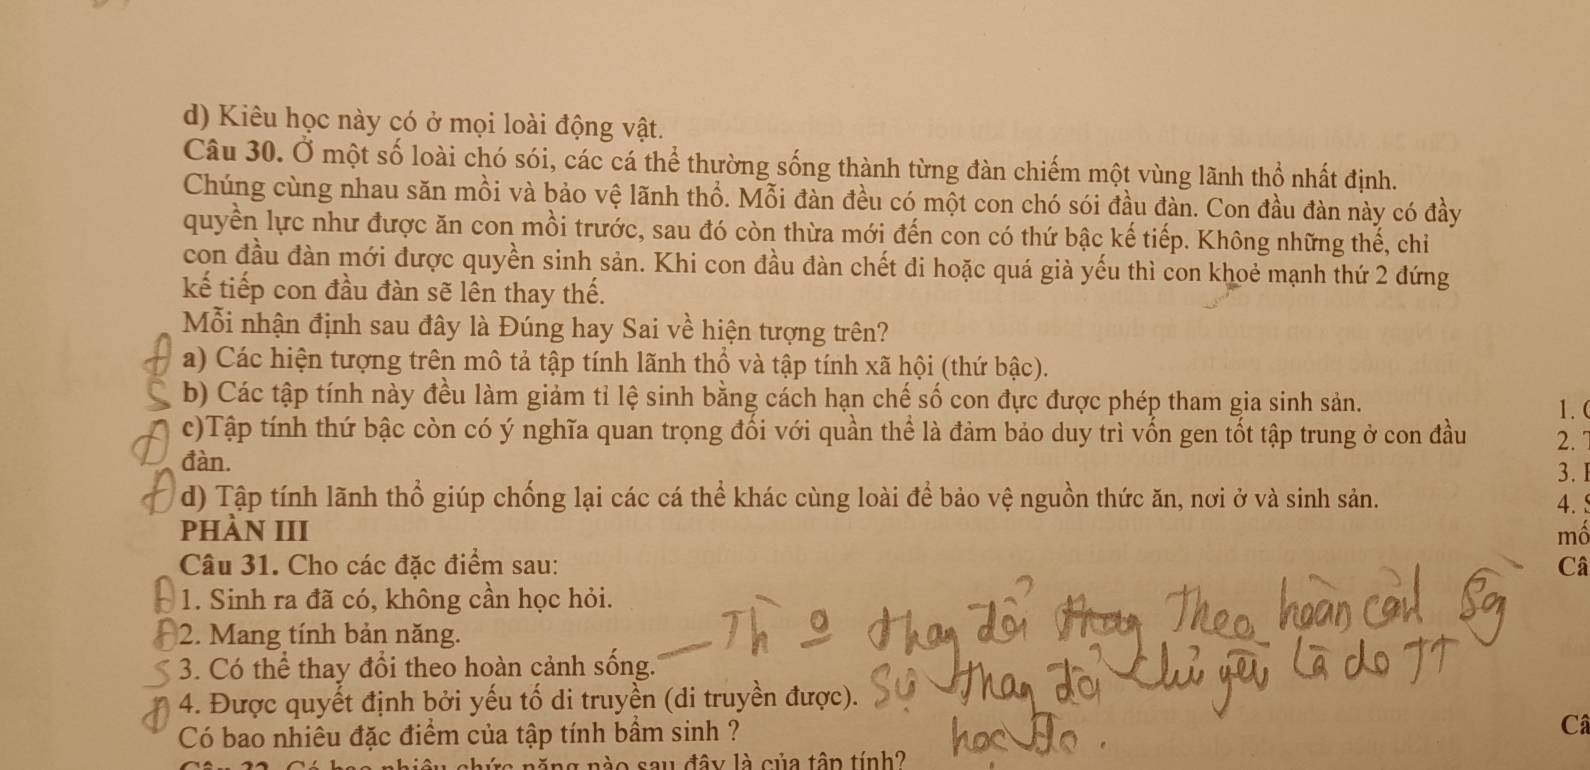 d) Kiêu học này có ở mọi loài động vật.
Câu 30. Ở một số loài chó sói, các cá thể thường sống thành từng đàn chiếm một vùng lãnh thổ nhất định.
Chúng cùng nhau săn mồi và bảo vệ lãnh thổ. Mỗi đàn đều có một con chó sói đầu đàn. Con đầu đàn này có đầy
quyền lực như được ăn con mồi trước, sau đó còn thừa mới đến con có thứ bậc kế tiếp. Không những thế, chỉ
con đầu đàn mới được quyền sinh sản. Khi con đầu đàn chết đi hoặc quá già yếu thì con khoẻ mạnh thứ 2 đứng
kế tiếp con đầu đàn sẽ lên thay thế.
Mỗi nhận định sau đây là Đúng hay Sai về hiện tượng trên?
Đ a) Các hiện tượng trên mô tả tập tính lãnh thổ và tập tính xã hội (thứ bậc).
S b) Các tập tính này đều làm giảm tỉ lệ sinh bằng cách hạn chế số con đực được phép tham gia sinh sản.
Đ c)Tập tính thứ bậc còn có ý nghĩa quan trọng đối với quần thể là đảm bảo duy trì vốn gen tốt tập trung ở con đầu
đàn.
Đ d) Tập tính lãnh thổ giúp chống lại các cá thể khác cùng loài để bảo vệ nguồn thức ăn, nơi ở và sinh sản.
PHẦN III
Câu 31. Cho các đặc điểm sau:
Đ 1. Sinh ra đã có, không cần học hỏi.
Đ 2. Mang tính bản năng.
S 3. Có thể thay đổi theo hoàn cảnh sống.
Đ 4. Được quyết định bởi yếu tố di truyền (di truyền được).
Có bao nhiêu đặc điểm của tập tính bẩm sinh ?
nhiêu chức năng nào sau đây là của tập tính?
thay đổi Theo hoàn cảnh
Sự thay đổi chủ yếu là do TT
học
1.
2.
3.
4.
mố
Câ
Câ